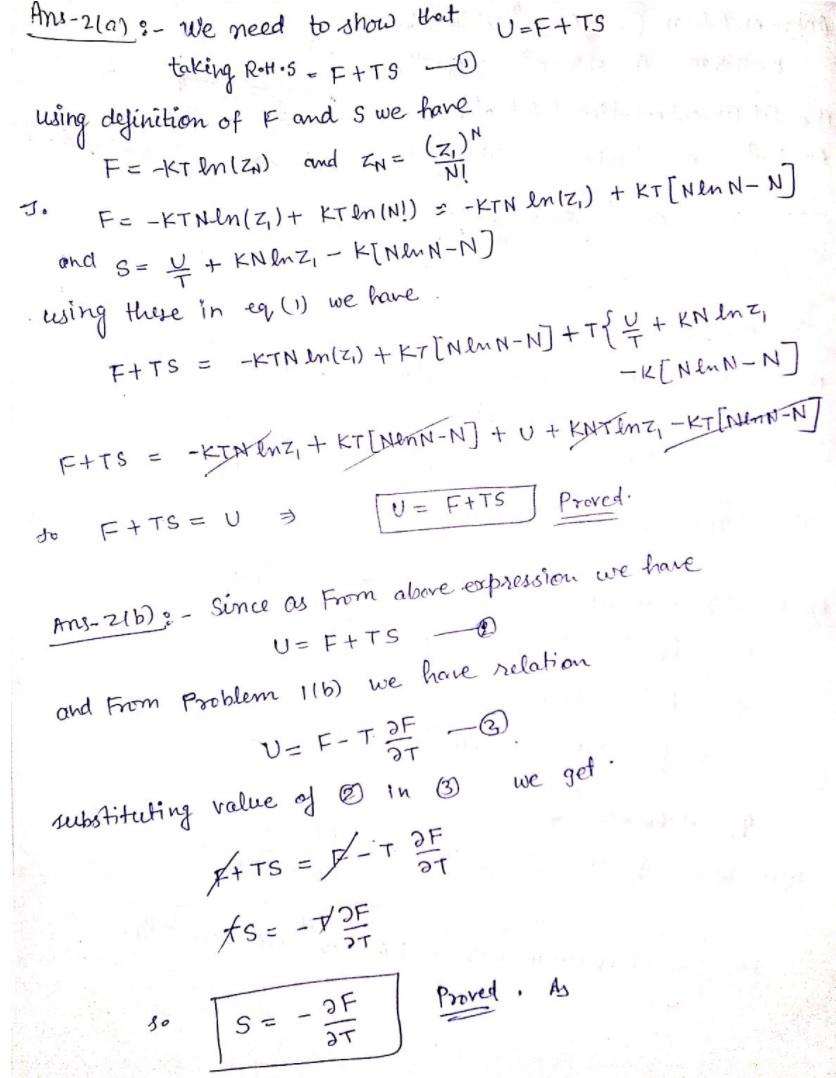 Ans-2(a) :- We need to show that U=F+TS
taking R.H.S = F+TS —①
using definition of F and S we have
F = -KT ln(Z_N) and Z_N = (Z_1)^N / N!
F = -KTN ln(Z_1) + KT ln(N!) = -KTN ln(Z_1) + KT[N ln N - N]
and S = U/T + KN ln Z_1 - K[N ln N - N]
using these in eq (1) we have
F+TS = -KTN ln(Z_1) + KT[N ln N - N] + T{U/T + KN ln Z_1
-K[N ln N - N]
F+TS = -KTN ln Z_1 + KT[N ln N - N] + U + KNT ln Z_1 - KT[N ln N - N]
so F+TS = U ⇒ U = F+TS Proved.
Ans-2(b) :- Since as From above expression we have
U = F+TS —②
and From Problem 1(b) we have relation
U = F - T ∂F/∂T —③
substituting value of ② in ③ we get.
F+TS = F - T ∂F/∂T
TS = -T ∂F/∂T
so S = - ∂F/∂T Proved. As